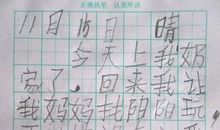 正确执笔 认真所讲
11月15日 晴
今天上我奶
家了。回来我让
我妈妈找阳阳玩